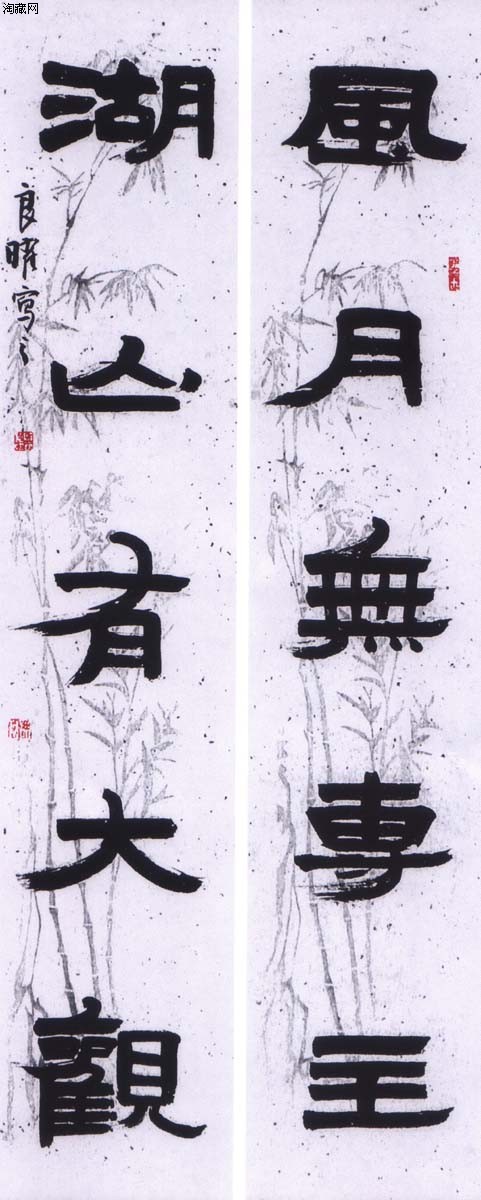 淘藏网
風月無專主
湖山有大觀
良 寫之